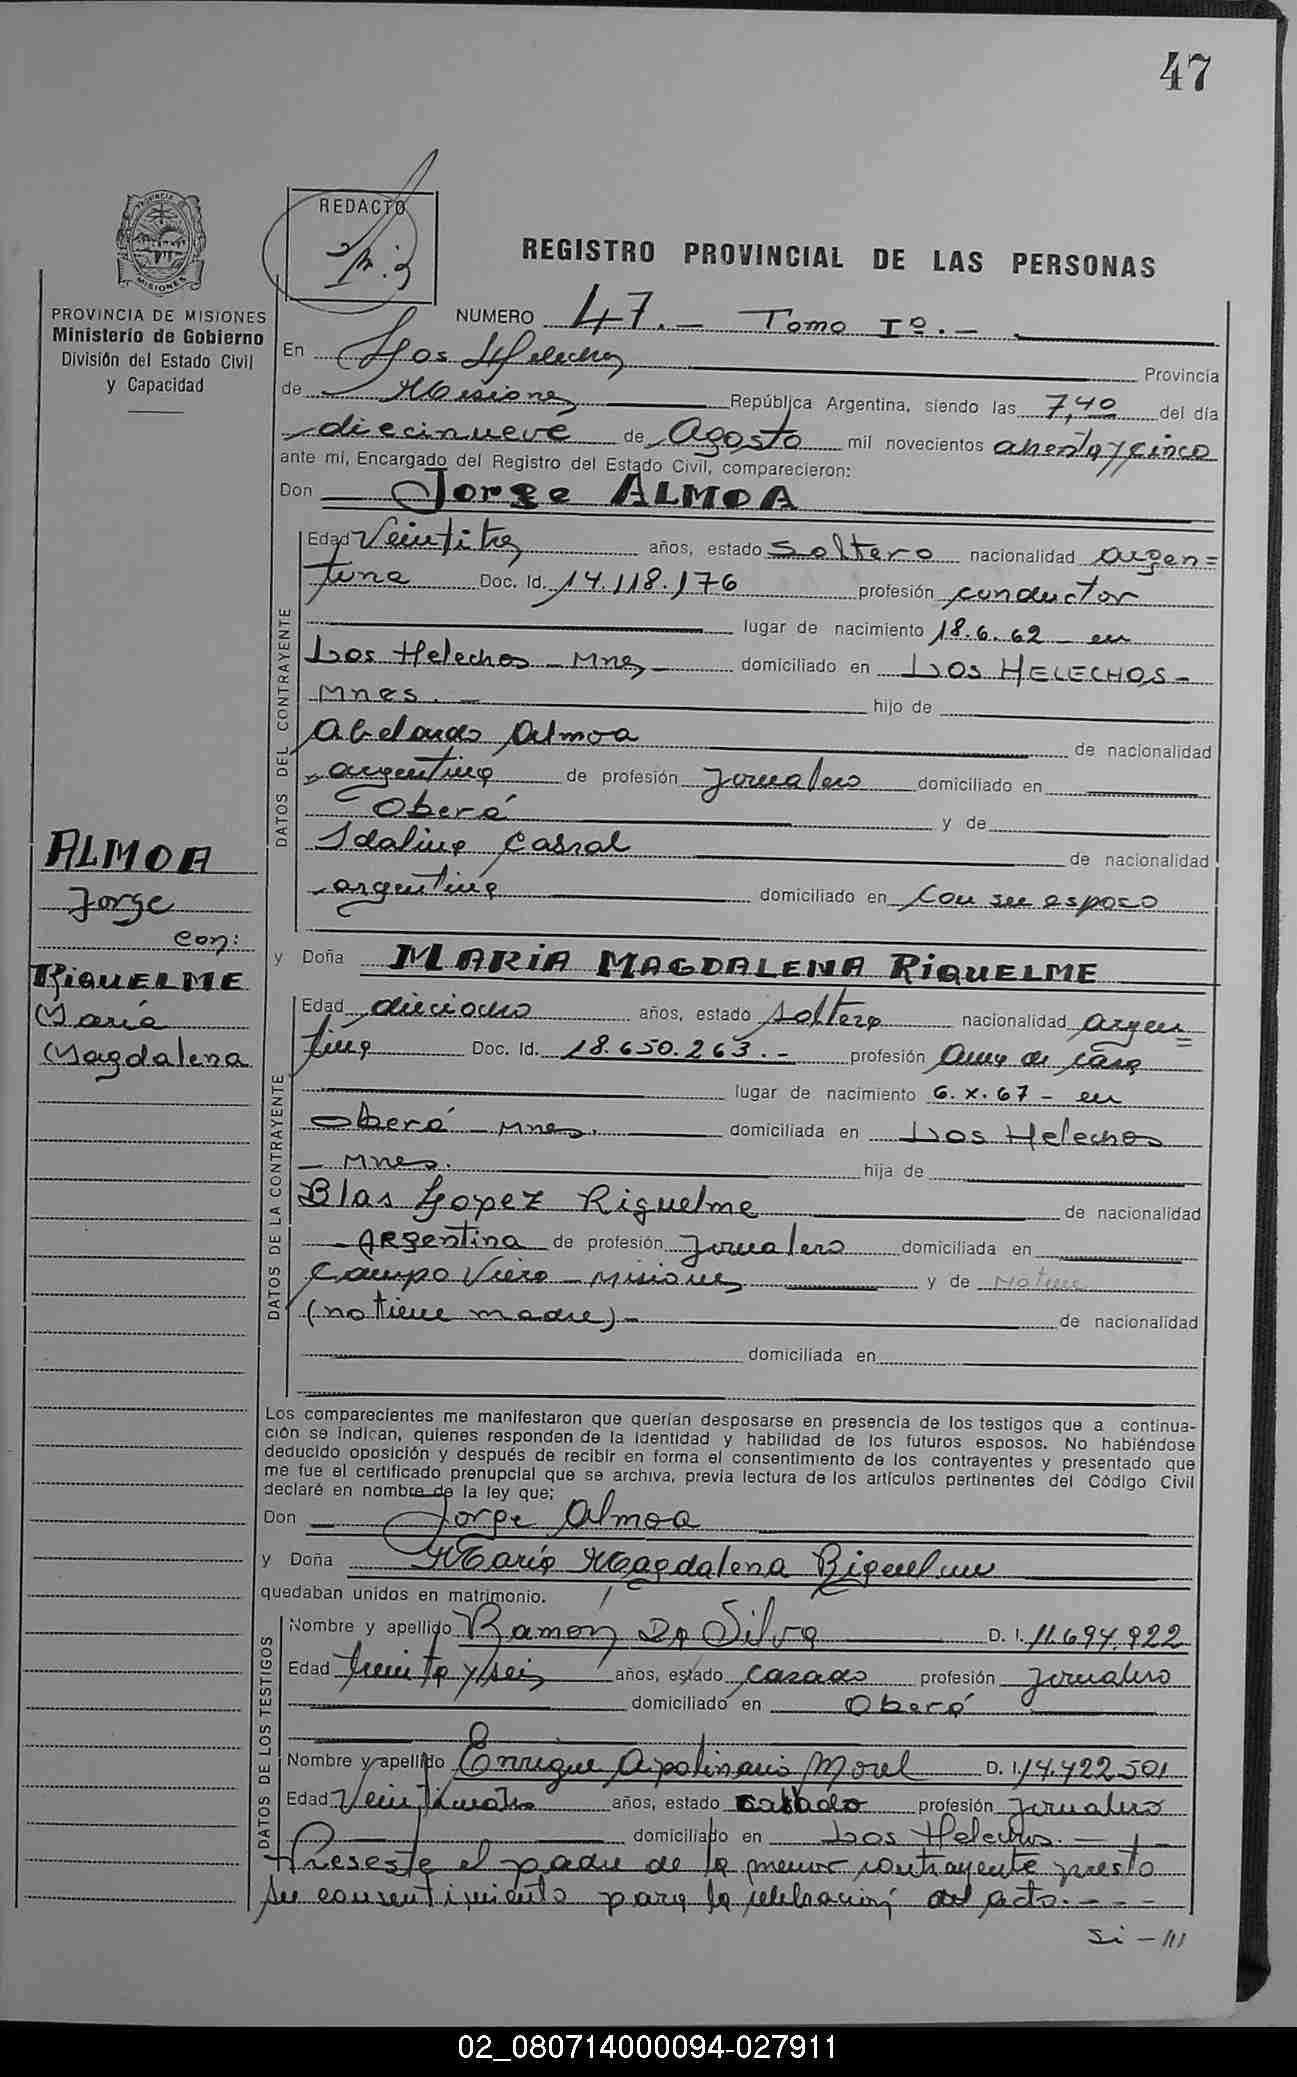 47
REDACTO
REGISTRO PROVINCIAL DE LAS PERSONAS
PROVINCIA DE MISIONES
MISIONES
PROVINCIA DE MISIONES
Ministerio de Gobierno
División del Estado Civil
y Capacidad
NUMERO 47.- Tomo Iº.-
En Los Helechos Provincia
de Misiones República Argentina, siendo las 7,40 del día
diecinueve de Agosto mil novecientos ochenta y cinco
ante mí, Encargado del Registro del Estado Civil, comparecieron:
Don Jorge ALMOA
DATOS DEL CONTRAYENTE
Edad Veintitres años, estado soltero nacionalidad argen=
tina Doc. Id. 14.118.176 profesión conductor
lugar de nacimiento 18.6.62 en
Los Helechos - Mnes domiciliado en LOS HELECHOS-
Mnes.- hijo de
Abelardo Almoa de nacionalidad
argentina de profesión Jornalero domiciliado en
Oberá y de
Idalina Cabral de nacionalidad
argentina domiciliado en Con su esposo
ALMOA
Jorge
con:
RIQUELME
María
Magdalena
y Doña MARIA MAGDALENA RIQUELME
DATOS DE LA CONTRAYENTE
Edad dieciocho años, estado soltera nacionalidad argen=
tina Doc. Id. 18.650.263.- profesión Ama de casa
lugar de nacimiento 6.X.67 - en
Oberá - Mnes. domiciliada en Los Helechos
- Mnes. hija de
Blas Lopez Riquelme de nacionalidad
- Argentina de profesión Jornalero domiciliada en
Campo Viera - Misiones y de No tiene
(no tiene madre)- de nacionalidad
domiciliada en
Los comparecientes me manifestaron que querían desposarse en presencia de los testigos que a continua-
ción se indican, quienes responden de la identidad y habilidad de los futuros esposos. No habiéndose
deducido oposición y después de recibir en forma el consentimiento de los contrayentes y presentado que
me fue el certificado prenupcial que se archiva, previa lectura de los artículos pertinentes del Código Civil
declaré en nombre de la ley que;
Don Jorge Almoa
y Doña María Magdalena Riquelme
quedaban unidos en matrimonio.
DATOS DE LOS TESTIGOS
Nombre y apellido Ramón Da Silva D. I. 11.694.922
Edad treinta y seis años, estado casado profesión Jornalero
domiciliado en Oberá
Nombre y apellido Enrique Apolinario Morel D. I. 14.422.501
Edad Veinticuatro años, estado casado profesión Jornalero
domiciliado en Los Helechos.-
Preseste el padre de la menor contrayente presto
su consentimiento para la celebración del acto.- - -
Si - ///
02_080714000094-027911